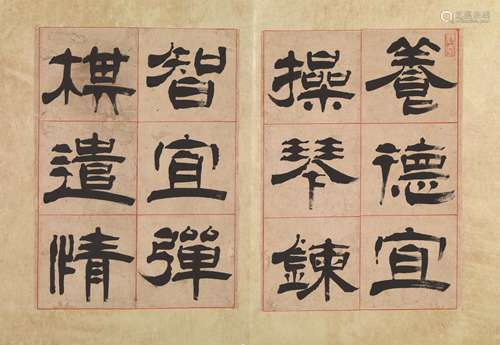 養德宜
操琴鍊
智宜彈
棋遣情